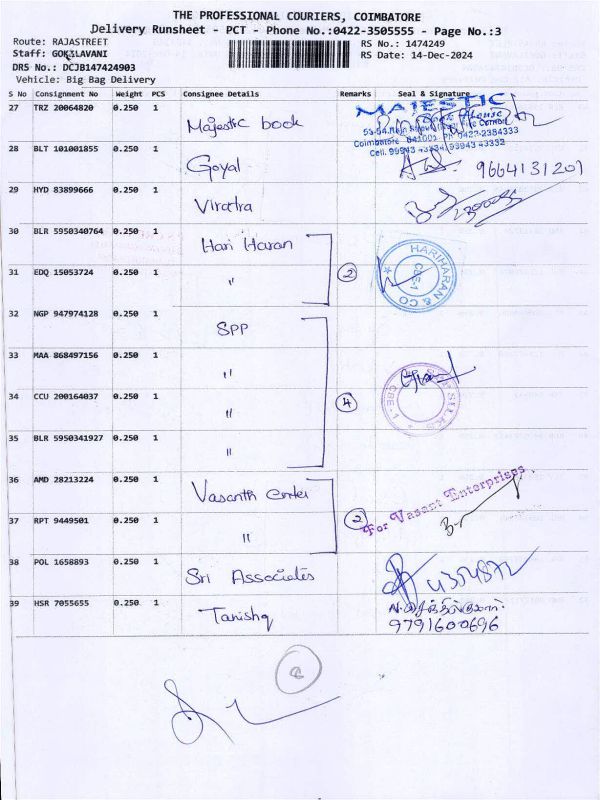 THE PROFESSIONAL COURIERS, COIMBATORE
Delivery Runsheet - PCT - Phone No.:0422-3505555 - Page No.:3
Route: RAJASTREET
RS No.: 1474249
Staff: GOKILAVANI
RS Date: 14-Dec-2024
DRS No.: DCJB147424903
Vehicle: Big Bag Delivery
S No Consignment No Weight PCS Consignee Details Remarks Seal & Signature
27 TRZ 20064820 0.250 1 Majestic book MAJESTIC
Coimbatore 641001. Ph: 0422-2384333
28 BLT 101001855 0.250 1 Goyal 9664131201
29 HYD 83899666 0.250 1 Viratra
30 BLR 5950340764 0.250 1 Hari Haran
31 EDQ 15053724 0.250 1 " 2 HARIHARAN & CO CBE-1
32 NGP 947974128 0.250 1 SPP
33 MAA 868497156 0.250 1 "
34 CCU 200164037 0.250 1 " 4 SILKS CBE-1
35 BLR 5950341927 0.250 1 "
36 AMD 28213224 0.250 1 Vasanth Enter
37 RPT 9449501 0.250 1 " 2 For Vasant Enterprises.
38 POL 1658893 0.250 1 Sri Associates
39 HSR 7055655 0.250 1 Tanishq
9791600696